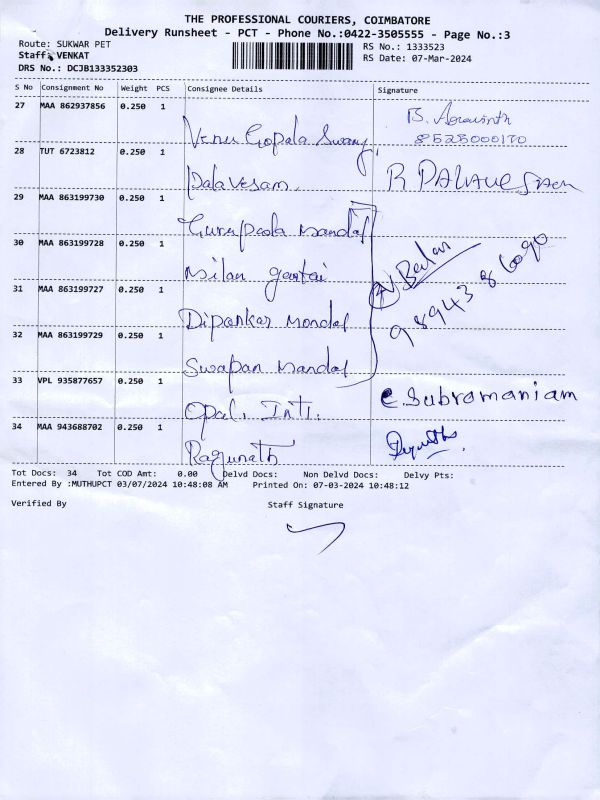 THE PROFESSIONAL COURIERS, COIMBATORE
Delivery Runsheet - PCT - Phone No.:0422-3505555 - Page No.:3
Route: SUKWAR PET
RS No.: 1333523
Staff: VENKAT
RS Date: 07-Mar-2024
DRS No.: DCJB133352303
S No Consignment No Weight PCS Consignee Details Signature
27 MAA 862937856 0.250 1 Venu Gopala Swamy, B. Aravinth
8525000170
28 TUT 6723812 0.250 1 Palavesam. R PALAVESAM
29 MAA 863199730 0.250 1 Gurupada Mandal
30 MAA 863199728 0.250 1 Milan gantai V. Balan
31 MAA 863199727 0.250 1 Dipankar Mondal
32 MAA 863199729 0.250 1 Swapan Mandal
33 VPL 935877657 0.250 1 Opal. Inti. C. Subramaniam
34 MAA 943688702 0.250 1 Ragunath
Tot Docs: 34 Tot COD Amt: 0.00 Delvd Docs: Non Delvd Docs: Delvy Pts:
Entered By :MUTHUPCT 03/07/2024 10:48:08 AM Printed On: 07-03-2024 10:48:12
Verified By Staff Signature